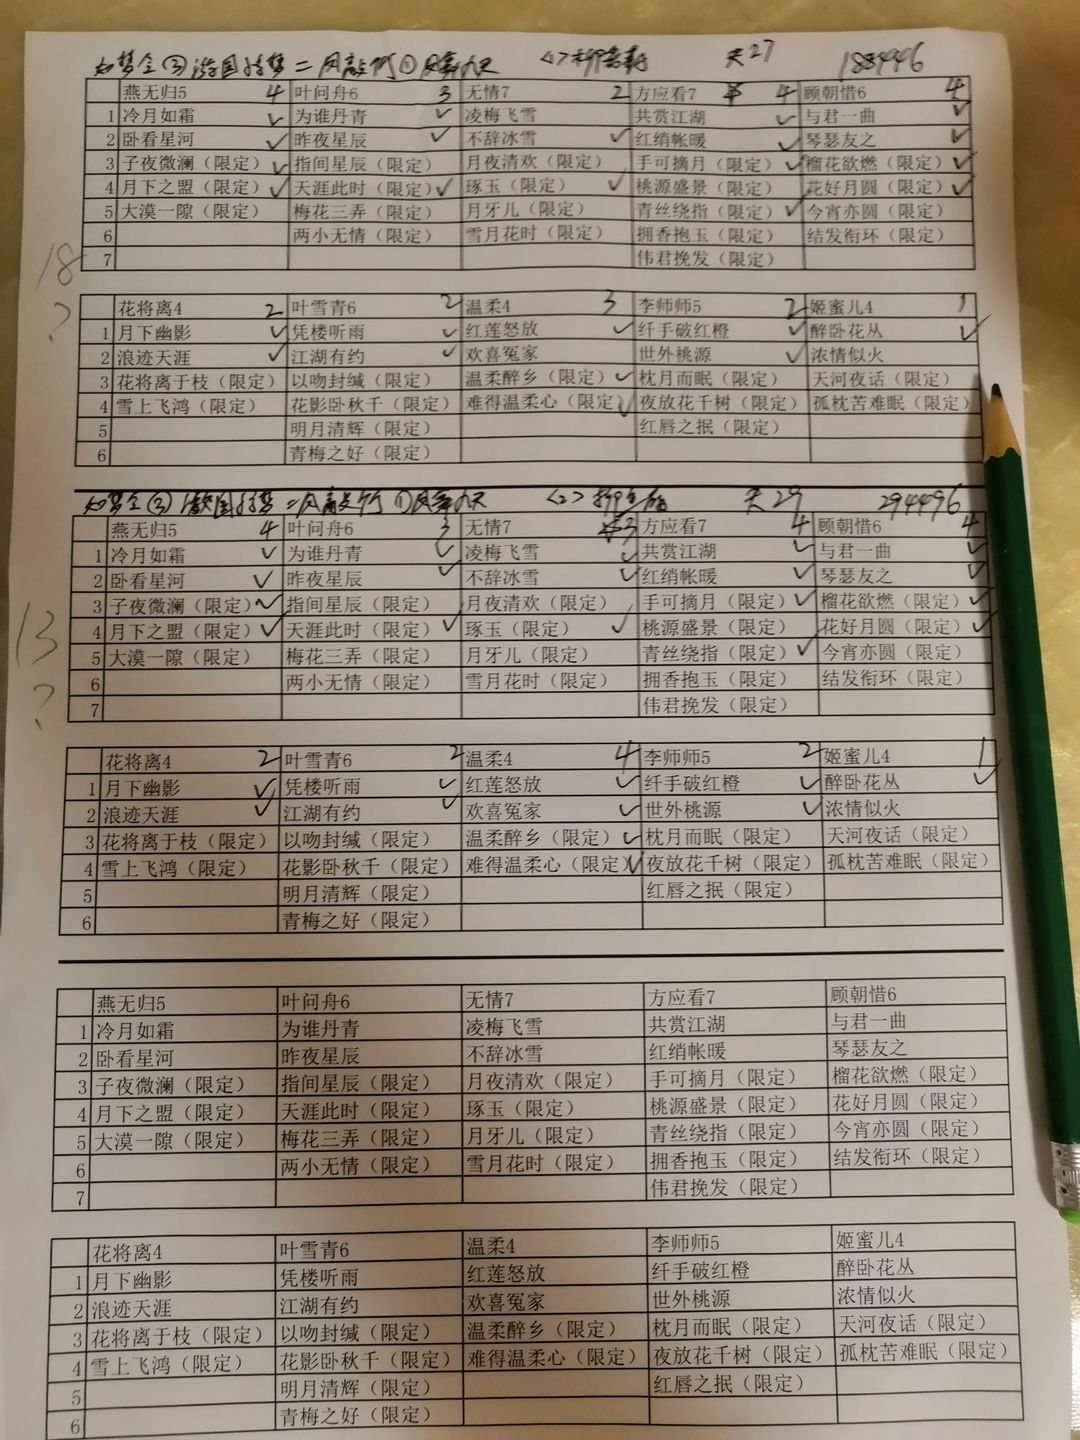 如梦令③游园惊梦二 风敲竹①凤舞九天 天27 183446
燕无归5 4 叶问舟6 3 无情7 2 方应看7 4 顾朝惜6 4
1 冷月如霜 ✓ 为谁丹青 ✓ 凌梅飞雪 共赏江湖 ✓ 与君一曲 ✓
2 卧看星河 ✓ 昨夜星辰 ✓ 不辞冰雪 ✓ 红绡帐暖 ✓ 琴瑟友之 ✓
3 子夜微澜（限定） ✓ 指间星辰（限定） 月夜清欢（限定） 手可摘月（限定） ✓ 榴花欲燃（限定） ✓
4 月下之盟（限定） ✓ 天涯此时（限定） ✓ 琢玉（限定） ✓ 桃源盛景（限定） 花好月圆（限定） ✓
5 大漠一隙（限定） 梅花三弄（限定） 月牙儿（限定） 青丝绕指（限定） ✓ 今宵亦圆（限定）
6 两小无情（限定） 雪月花时（限定） 拥香抱玉（限定） 结发衔环（限定）
7 伟君挽发（限定）
18
?
花将离4 2 叶雪青6 2 温柔4 3 李师师5 2 姬蜜儿4 1
1 月下幽影 ✓ 凭楼听雨 ✓ 红莲怒放 ✓ 纤手破红橙 ✓ 醉卧花丛 ✓
2 浪迹天涯 ✓ 江湖有约 ✓ 欢喜冤家 世外桃源 ✓ 浓情似火
3 花将离于枝（限定） 以吻封缄（限定） 温柔醉乡（限定） ✓ 枕月而眠（限定） 天河夜话（限定）
4 雪上飞鸿（限定） 花影卧秋千（限定） 难得温柔心（限定） ✓ 夜放花千树（限定） 孤枕苦难眠（限定）
5 明月清辉（限定） 红唇之抿（限定）
6 青梅之好（限定）
如梦令③游园惊梦二 风敲竹①凤舞九天 天29 294496
燕无归5 4 叶问舟6 3 无情7 3 方应看7 4 顾朝惜6 4
1 冷月如霜 ✓ 为谁丹青 ✓ 凌梅飞雪 ✓ 共赏江湖 ✓ 与君一曲 ✓
2 卧看星河 ✓ 昨夜星辰 ✓ 不辞冰雪 ✓ 红绡帐暖 ✓ 琴瑟友之 ✓
3 子夜微澜（限定） ✓ 指间星辰（限定） 月夜清欢（限定） 手可摘月（限定） ✓ 榴花欲燃（限定） ✓
4 月下之盟（限定） ✓ 天涯此时（限定） ✓ 琢玉（限定） ✓ 桃源盛景（限定） 花好月圆（限定） ✓
5 大漠一隙（限定） 梅花三弄（限定） 月牙儿（限定） 青丝绕指（限定） ✓ 今宵亦圆（限定）
6 两小无情（限定） 雪月花时（限定） 拥香抱玉（限定） 结发衔环（限定）
7 伟君挽发（限定）
13
?
花将离4 2 叶雪青6 2 温柔4 4 李师师5 2 姬蜜儿4 1
1 月下幽影 ✓ 凭楼听雨 ✓ 红莲怒放 ✓ 纤手破红橙 ✓ 醉卧花丛 ✓
2 浪迹天涯 ✓ 江湖有约 ✓ 欢喜冤家 ✓ 世外桃源 ✓ 浓情似火
3 花将离于枝（限定） 以吻封缄（限定） 温柔醉乡（限定） ✓ 枕月而眠（限定） 天河夜话（限定）
4 雪上飞鸿（限定） 花影卧秋千（限定） 难得温柔心（限定） ✓ 夜放花千树（限定） 孤枕苦难眠（限定）
5 明月清辉（限定） 红唇之抿（限定）
6 青梅之好（限定）
燕无归5 叶问舟6 无情7 方应看7 顾朝惜6
1 冷月如霜 为谁丹青 凌梅飞雪 共赏江湖 与君一曲
2 卧看星河 昨夜星辰 不辞冰雪 红绡帐暖 琴瑟友之
3 子夜微澜（限定） 指间星辰（限定） 月夜清欢（限定） 手可摘月（限定） 榴花欲燃（限定）
4 月下之盟（限定） 天涯此时（限定） 琢玉（限定） 桃源盛景（限定） 花好月圆（限定）
5 大漠一隙（限定） 梅花三弄（限定） 月牙儿（限定） 青丝绕指（限定） 今宵亦圆（限定）
6 两小无情（限定） 雪月花时（限定） 拥香抱玉（限定） 结发衔环（限定）
7 伟君挽发（限定）
花将离4 叶雪青6 温柔4 李师师5 姬蜜儿4
1 月下幽影 凭楼听雨 红莲怒放 纤手破红橙 醉卧花丛
2 浪迹天涯 江湖有约 欢喜冤家 世外桃源 浓情似火
3 花将离于枝（限定） 以吻封缄（限定） 温柔醉乡（限定） 枕月而眠（限定） 天河夜话（限定）
4 雪上飞鸿（限定） 花影卧秋千（限定） 难得温柔心（限定） 夜放花千树（限定） 孤枕苦难眠（限定）
5 明月清辉（限定） 红唇之抿（限定）
6 青梅之好（限定）